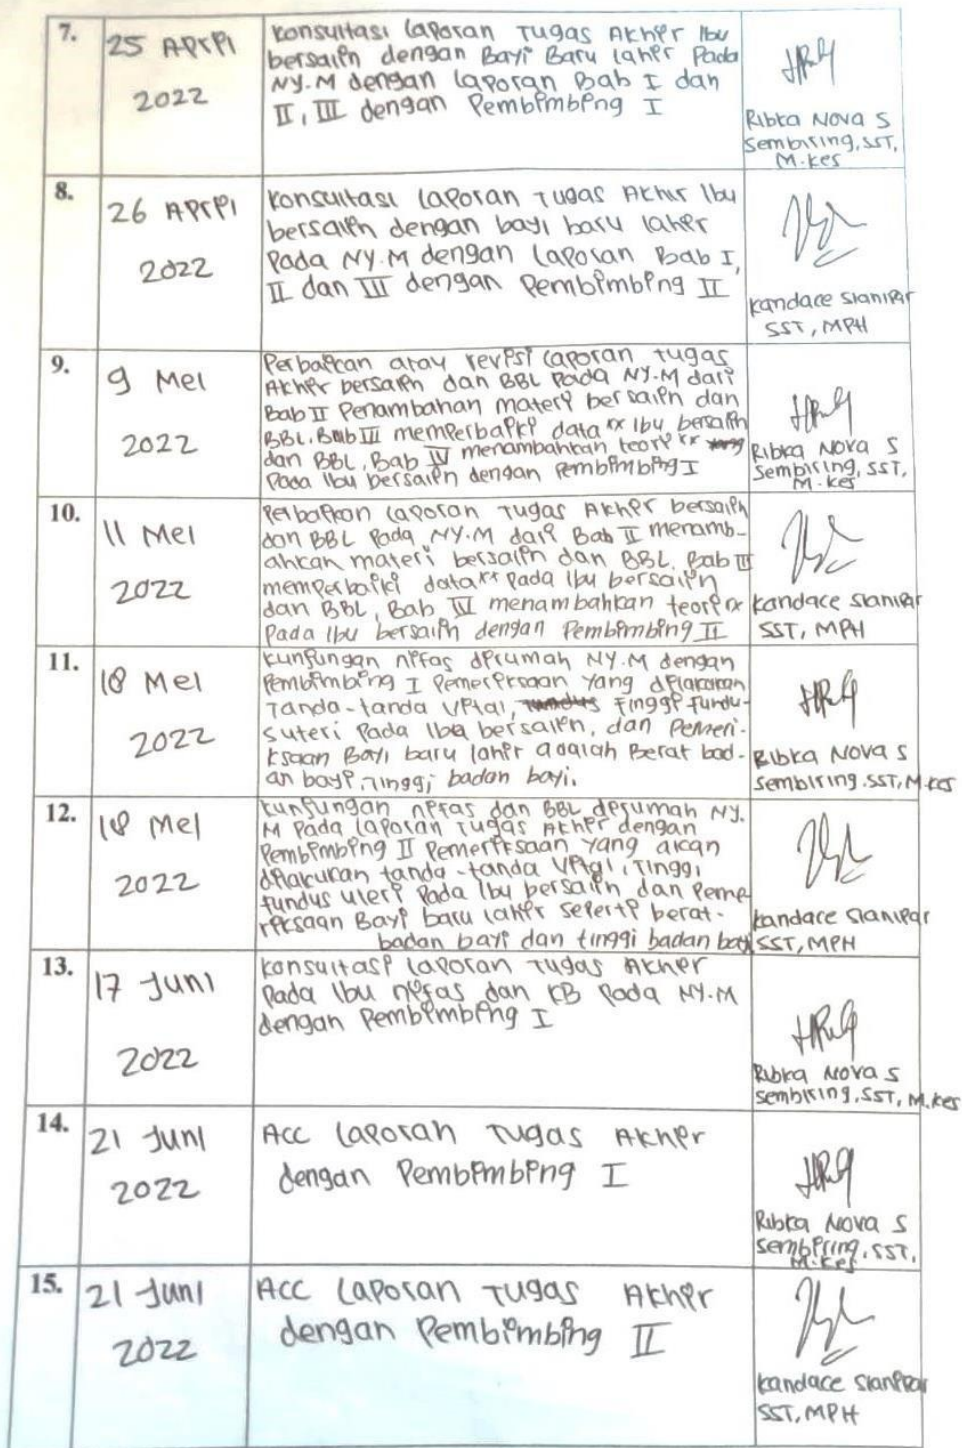 7.
25 April
2022
Konsultasi Laporan Tugas Akhir Ibu
bersalin dengan Bayi Baru lahir Pada
NY.M dengan laporan Bab I dan
II, III dengan Pembimbing I
Ribka Nova S
Sembiring, SST,
M.Kes
8.
26 April
2022
Konsultasi Laporan Tugas Akhir Ibu
bersalin dengan bayi baru lahir
Pada NY.M dengan Laporan Bab I,
II dan III dengan Pembimbing II
Kandace Sianipar
SST, MPH
9.
9 Mei
2022
Perbaikan atau revisi laporan tugas
Akhir bersalin dan BBL Pada NY.M dari
Bab II Penambahan materi bersalin dan
BBL, Bab III memperbaiki data xx Ibu bersalin
dan BBL, Bab IV menambahkan teori xx
Pada Ibu bersalin dengan Pembimbing I
Ribka Nova S
Sembiring, SST,
M.Kes
10.
11 Mei
2022
Perbaikan Laporan Tugas Akhir bersalin
dan BBL Pada NY.M dari Bab II menamb-
ahkan materi bersalin dan BBL, Bab III
memperbaiki data xx pada Ibu bersalin
dan BBL, Bab IV menambahkan teori xx
Pada Ibu bersalin dengan Pembimbing II
Kandace Sianipar
SST, MPH
11.
18 Mei
2022
Kunjungan nifas dirumah NY.M dengan
Pembimbing I Pemeriksaan Yang dilakukan
Tanda-tanda Vital, Tinggi fundu-
s uteri Pada Ibu bersalin, dan Pemeri-
ksaan Bayi baru lahir adalah Berat bad-
an bayi, Tinggi badan bayi.
Ribka Nova S
Sembiring.SST, M.Kes
12.
18 Mei
2022
Kunjungan nifas dan BBL dirumah NY.
M Pada Laporan Tugas Akhir dengan
Pembimbing II Pemeriksaan yang akan
dilakukan tanda-tanda Vital, Tinggi
fundus uteri Pada Ibu bersalin dan Peme
riksaan Bayi baru lahir seperti berat-
badan bayi dan tinggi badan bayi
Kandace Sianipar
SST, MPH
13.
17 Juni
2022
Konsultasi Laporan Tugas Akhir
Pada Ibu nifas dan KB Pada NY.M
dengan Pembimbing I
Ribka Nova S
Sembiring, SST, M.Kes
14.
21 Juni
2022
ACC Laporan Tugas Akhir
dengan Pembimbing I
Ribka Nova S
Sembiring, SST,
M.Kes
15.
21 Juni
2022
ACC Laporan Tugas Akhir
dengan Pembimbing II
Kandace Sianipar
SST, MPH